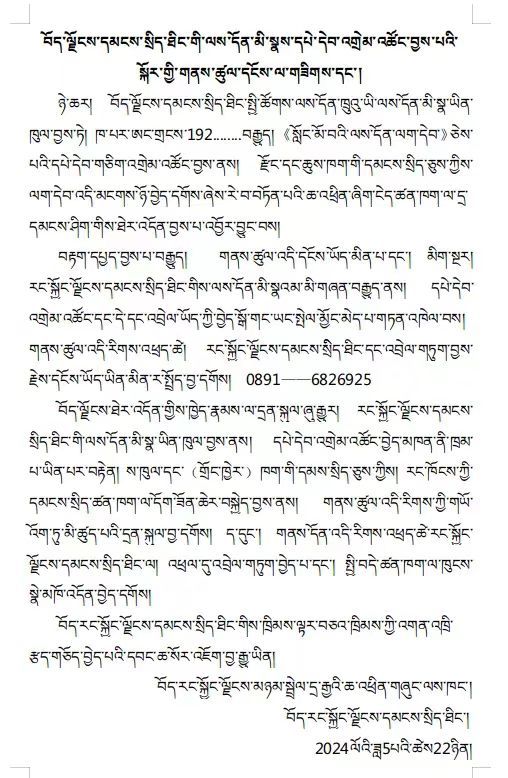 བོད་ལྗོངས་དམངས་སྲིད་ཐིང་གི་ལས་དོན་མི་སྣས་དཔེ་དེབ་འགྲེམ་འཚོང་བྱས་པའི་
སྐོར་གྱི་གནས་ཚུལ་དངོས་ལ་གཟིགས་དང་།
ཉེ་ཆར། བོད་ལྗོངས་དམངས་སྲིད་ཐིང་སྤྱི་ཚོགས་ལས་དོན་ཁྲུའུ་ཡི་ལས་དོན་མི་སྣ་ཡིན་
ཁུལ་བྱས་ཏེ། ཁ་པར་ཨང་གྲངས་192........བརྒྱུད། 《སློང་མོ་བའི་ལས་དོན་ལག་དེབ》ཅེས་
པའི་དཔེ་དེབ་གཅིག་འགྲེམ་འཚོང་བྱས་ནས། རྫོང་དང་ཆུས་ཁག་གི་དམངས་སྲིད་ཅུས་ཀྱིས་
ལག་དེབ་འདི་མངགས་ཉོ་བྱེད་དགོས་ཞེས་རེ་བ་བཏོན་པའི་ཆ་འཕྲིན་ཞིག་ངེད་ཚན་ཁག་ལ་དྲ་
དམངས་ཤིག་གིས་ཐེར་འདོན་བྱས་པ་འབྱོར་བྱུང་བས།
བརྟག་དཔྱད་བྱས་པ་བརྒྱུད། གནས་ཚུལ་འདི་དངོས་ཡོད་མིན་པ་དང་། མིག་སྔར།
རང་སྐྱོང་ལྗོངས་དམངས་སྲིད་ཐིང་གིས་ལས་དོན་མི་སྣའམ་མི་གཞན་བརྒྱུད་ནས། དཔེ་དེབ་
འགྲེམ་འཚོང་དང་དེ་དང་འབྲེལ་ཡོད་ཀྱི་བྱེད་སྒོ་གང་ཡང་སྤེལ་མྱོང་མེད་པ་གཏན་འཁེལ་བས།
གནས་ཚུལ་འདི་རིགས་འཕྲད་ཚེ། རང་སྐྱོང་ལྗོངས་དམངས་སྲིད་ཐིང་དང་འབྲེལ་གཏུག་བྱས་
རྗེས་དངོས་ཡོད་ཡིན་མིན་ར་སྤྲོད་བྱ་དགོས། 0891——6826925
བོད་ལྗོངས་ཐེར་འདོན་གྱིས་ཁྱེད་རྣམས་ལ་དྲན་སྐུལ་ཞུ་རྒྱུར། རང་སྐྱོང་ལྗོངས་དམངས་
སྲིད་ཐིང་གི་ལས་དོན་མི་སྣ་ཡིན་ཁུལ་བྱས་ནས། དཔེ་དེབ་འགྲེམ་འཚོང་བྱེད་མཁན་ནི་ཁྲམ་
པ་ཡིན་པར་བརྟེན། ས་ཁུལ་དང་（གྲོང་ཁྱེར་）ཁག་གི་དམས་སྲིད་ཅུས་ཀྱིས། རང་ཁོངས་ཀྱི་
དམངས་སྲིད་ཚན་ཁག་ལ་དོག་ཟོན་ཆེར་བསྐྱེད་བྱས་ནས། གནས་ཚུལ་འདི་རིགས་ཀྱི་གཡོ་
འོག་ཏུ་མི་ཚུད་པའི་དྲན་སྐུལ་བྱ་དགོས། ད་དུང་། གནས་དོན་འདི་རིགས་འཕྲད་ཚེ་རང་སྐྱོང་
ལྗོངས་དམངས་སྲིད་ཐིང་ལ། འཕྲལ་དུ་འབྲེལ་གཏུག་བྱེད་པ་དང་། སྤྱི་བདེ་ཚན་ཁག་ལ་ཁུངས་
སྣེ་མཁོ་འདོན་བྱེད་དགོས།
བོད་རང་སྐྱོང་ལྗོངས་དམངས་སྲིད་ཐིང་གིས་ཁྲིམས་ལྟར་བཅའ་ཁྲིམས་ཀྱི་འགན་འཁྲི་
རྩད་གཅོད་བྱེད་པའི་དབང་ཆ་སོར་འཇོག་བྱ་རྒྱུ་ཡིན།
བོད་རང་སྐྱོང་ལྗོངས་མཉམ་སྦྲེལ་དྲ་རྒྱའི་ཆ་འཕྲིན་གཞུང་ལས་ཁང་།
བོད་རང་སྐྱོང་ལྗོངས་དམངས་སྲིད་ཐིང་།
2024ལོའི་ཟླ5པའི་ཚེས22ཉིན།